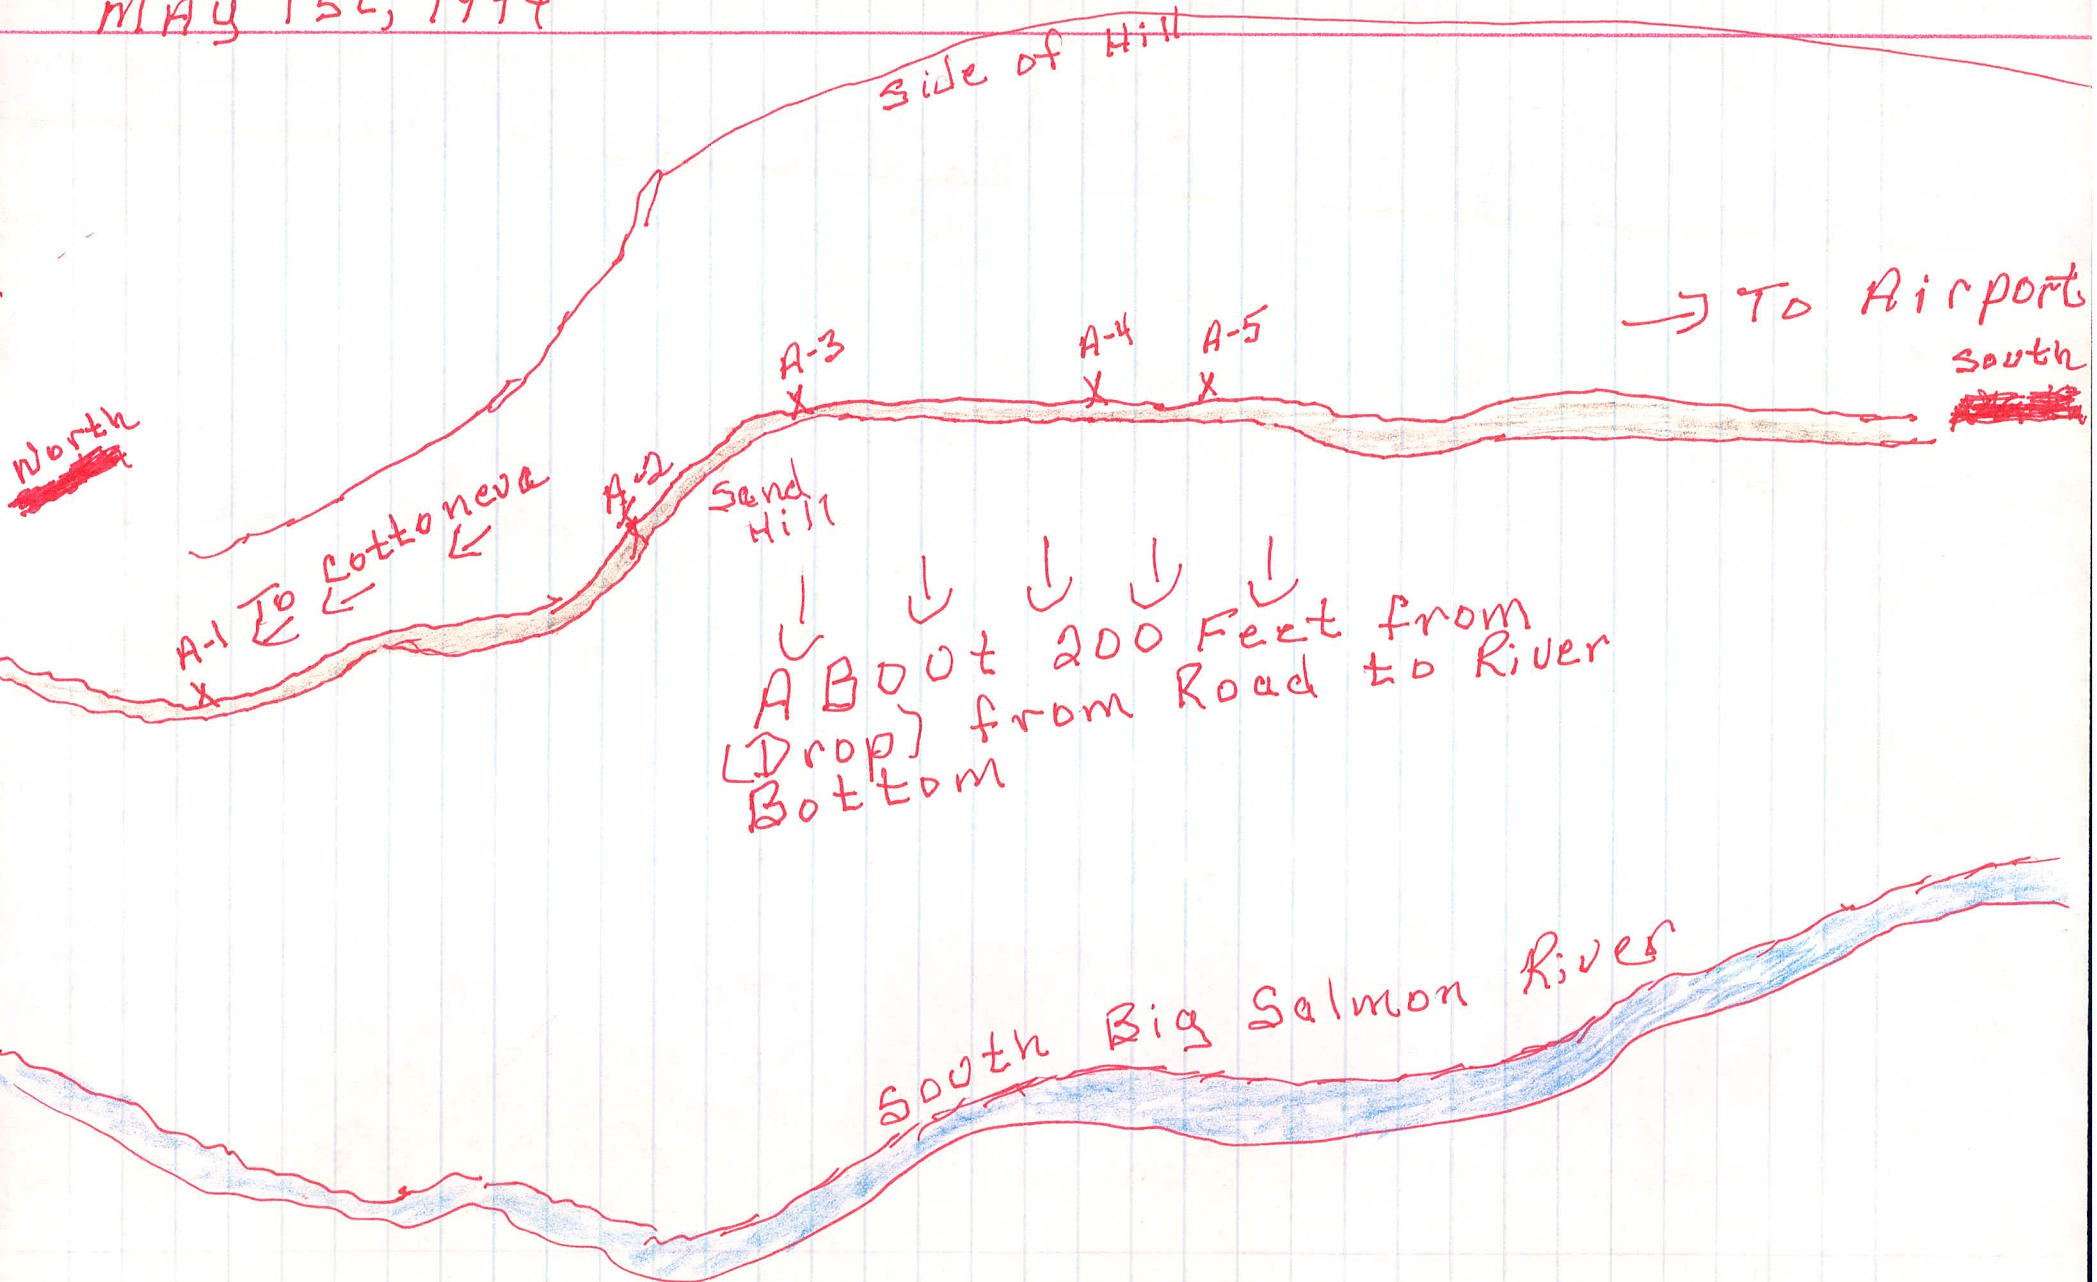 MAY 1st, 1994
Side of Hill
To Airport
South
North
A-3
A-4
A-5
A-2
Sand
Hill
To Cottoneva
A-1
ABOOt 200 Feet from
(Drop) from Road to River
Bottom
South Big Salmon River